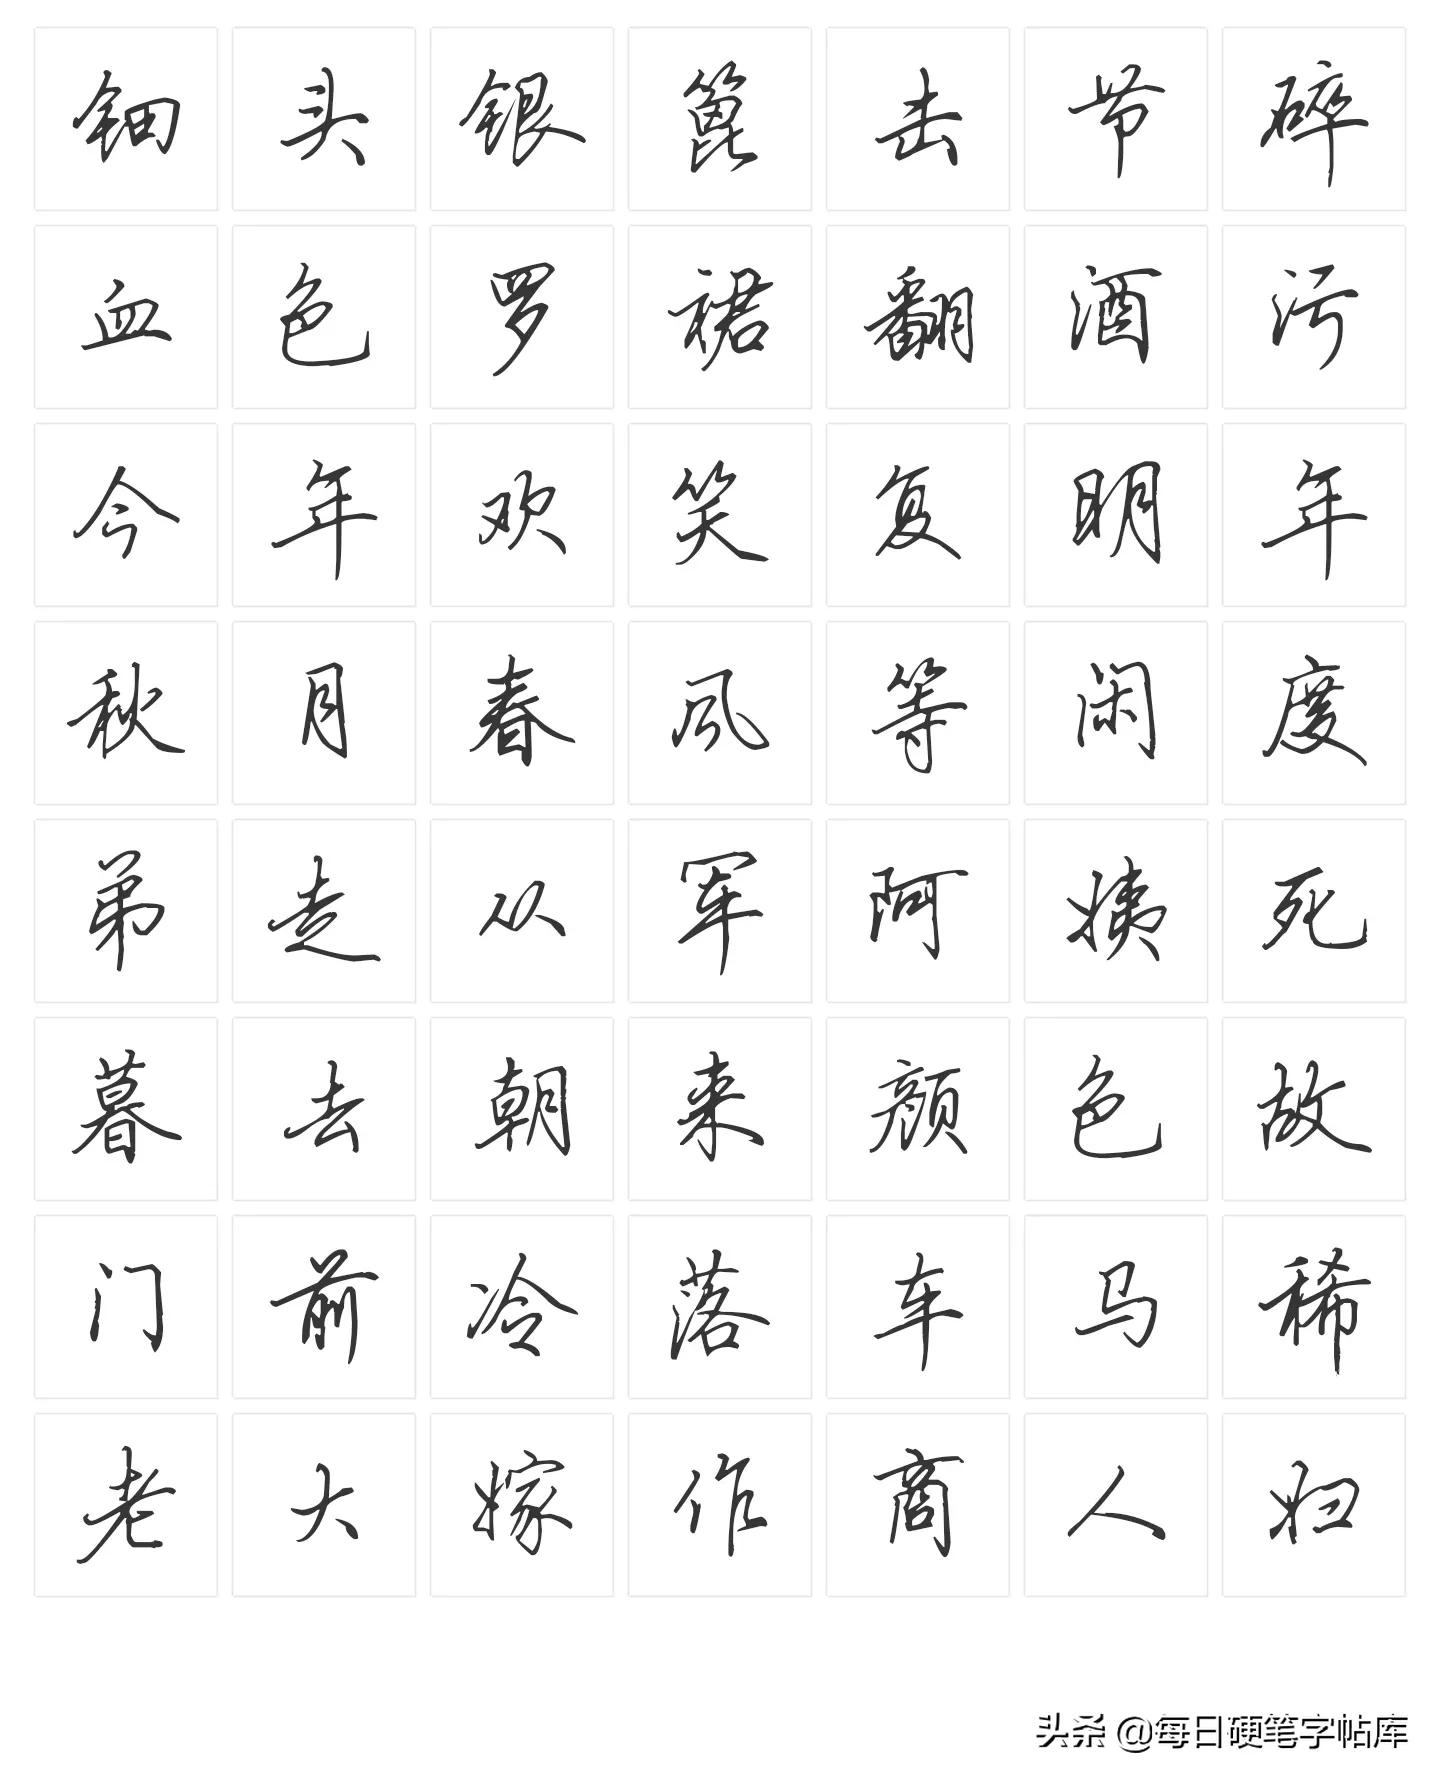 钿头银篦击节碎
血色罗裙翻酒污
今年欢笑复明年
秋月春风等闲度
弟走从军阿姨死
暮去朝来颜色故
门前冷落车马稀
老大嫁作商人妇
头条 @每日硬笔字帖库